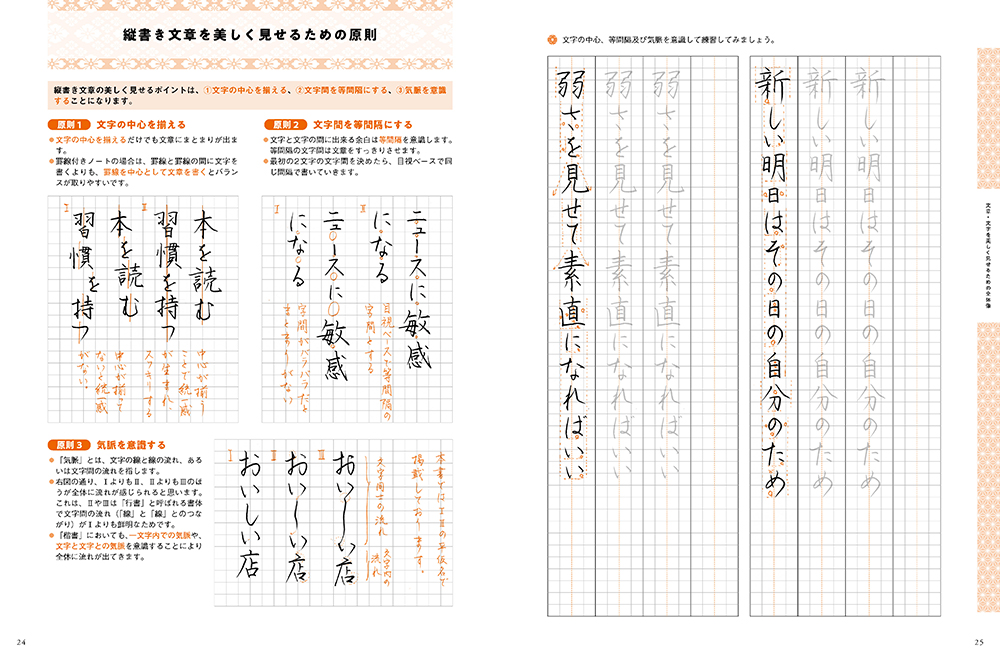 縦書き文章を美しく見せるための原則
縦書き文章の美しく見せるポイントは、①文字の中心を揃える、②文字間を等間隔にする、③気脈を意識
することになります。
原則1 文字の中心を揃える
●文字の中心を揃えるだけでも文章にまとまりが出ま
す。
●罫線付きノートの場合は、罫線と罫線の間に文字を
書くよりも、罫線を中心として文章を書くとバラン
スが取りやすいです。
原則2 文字間を等間隔にする
●文字と文字の間に出来る余白は等間隔を意識します。
等間隔の文字間は文章をすっきりさせます。
●最初の2文字の文字間を決めたら、目視ベースで同
じ間隔で書いていきます。
Ⅱ
本を読む
習慣を持つ
中心が揃う
ことで統一感
が生まれ、
スッキリする
Ⅰ
本を読む
習慣を持つ
中心が揃って
ないと統一感
がない。
Ⅱ
ニュースに敏感
になる
目視ベースで等間隔の
字間をとする
Ⅰ
ニュースに敏感
になる
字間がバラバラだと
まとまりがない
原則3 気脈を意識する
●「気脈」とは、文字の線と線の流れ、ある
いは文字間の流れを指します。
●右図の通り、ⅠよりもⅡ、ⅡよりもⅢのほ
うが全体に流れが感じられると思います。
これは、ⅡやⅢは「行書」と呼ばれる書体
で文字間の流れ（「線」と「線」とのつな
がり）がⅠよりも鮮明なためです。
●「楷書」においても、一文字内での気脈や、
文字と文字との気脈を意識することにより
全体に流れが出てきます。
本書ではⅠⅡの平仮名で
掲載しております。
文字同士の流れ
文字内の
流れ
Ⅲ
おいしい店
Ⅱ
おいしい店
Ⅰ
おいしい店
24
文字の中心、等間隔及び気脈を意識して練習してみましょう。
新しい明日はその日の自分のため
新しい明日はその日の自分のため
新しい明日はその日の自分のため
弱さを見せて素直になればいい
弱さを見せて素直になればいい
弱さを見せて素直になればいい
文章・文字を美しく見せるための全体像
25